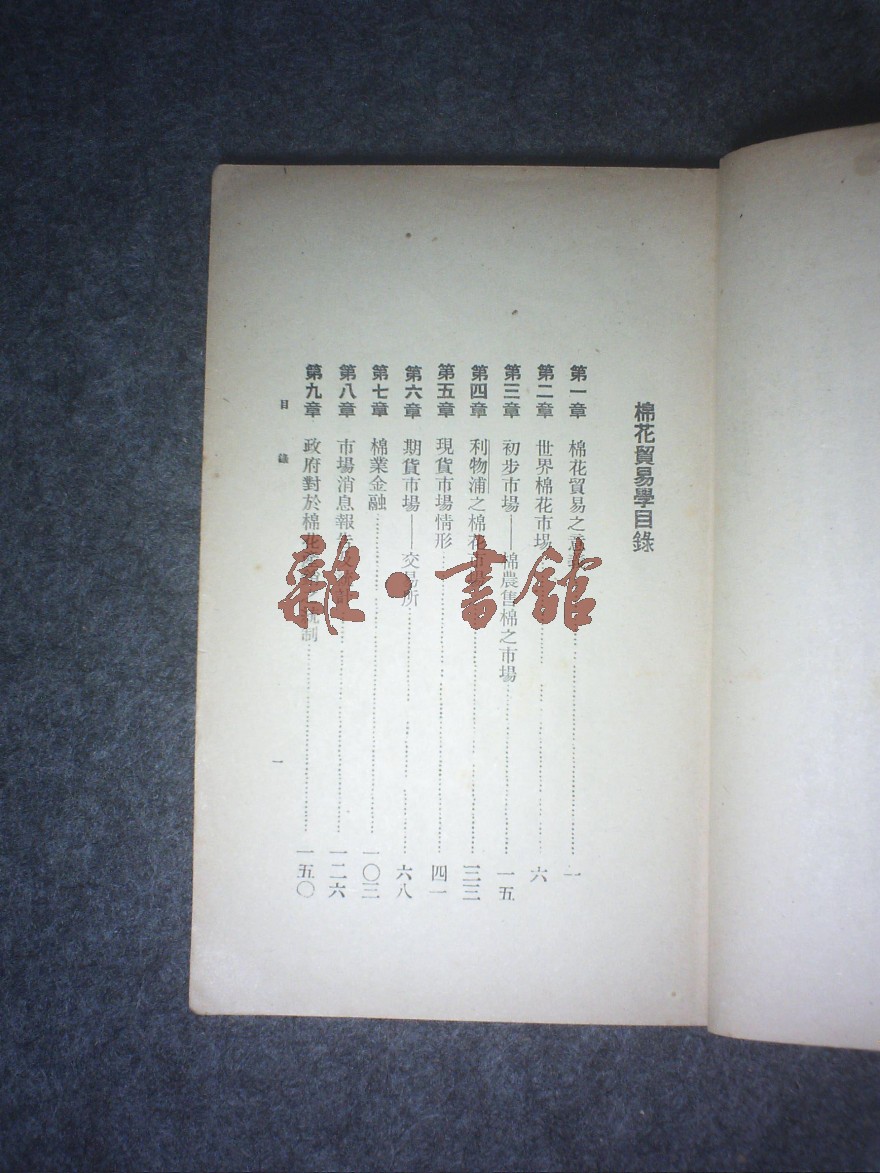 棉花貿易學目錄
第一章 棉花貿易之意 一
第二章 世界棉花市場 六
第三章 初步市場——棉農售棉之市場 一五
第四章 利物浦之棉花市場 三三
第五章 現貨市場情形 四一
第六章 期貨市場——交易所 六八
第七章 棉業金融 一〇三
第八章 市場消息報告 一二六
第九章 政府對於棉花 統制 一五〇
目錄 一
雜·書館